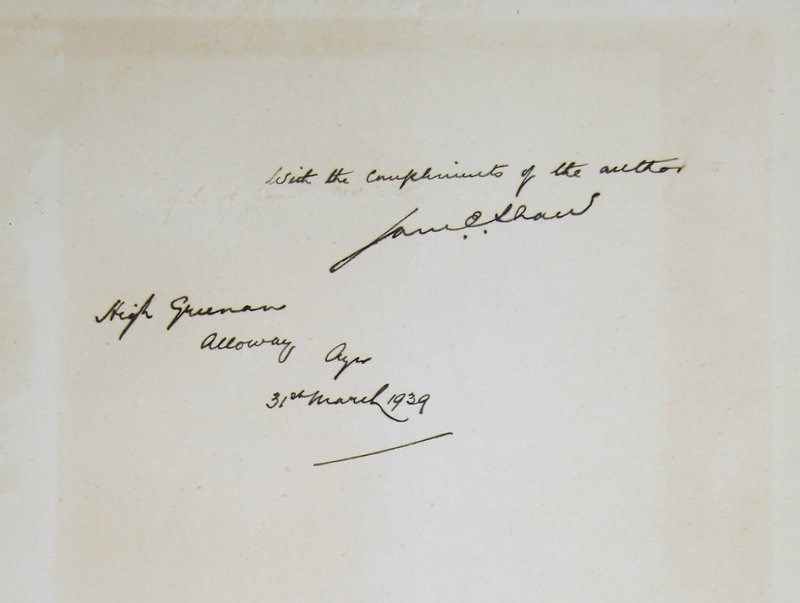 With the compliments of the author
Jam. E. Shaw
High Greenan
Alloway
Ayr
31st March 1939